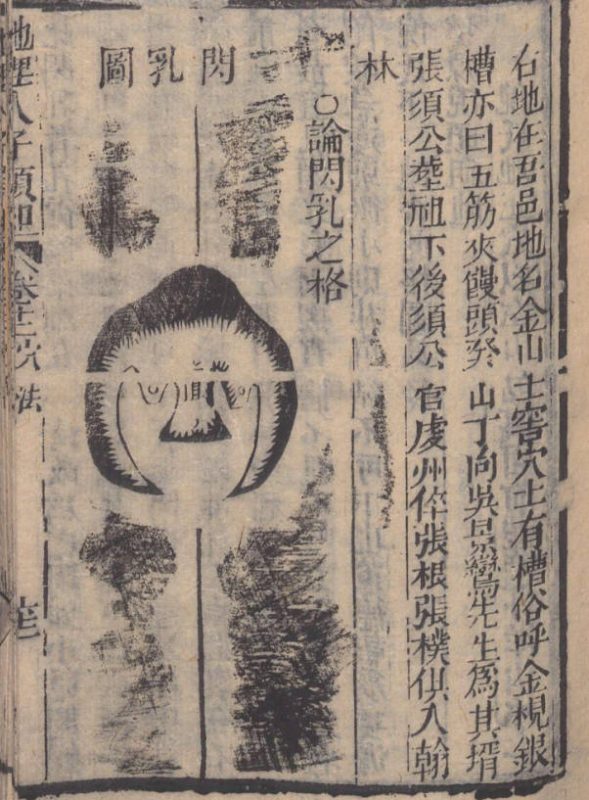 右地在吾邑地名金山土窖穴上有槽俗呼金梘銀
槽亦曰五筋夾饅頭癸山丁向吳景鸞先生為其壻
張須公塟祖下後須公官虔州倅張根張樸俱入翰
林
○論閃乳之格
閃乳圖
間
地理人子須知 卷十二 穴法